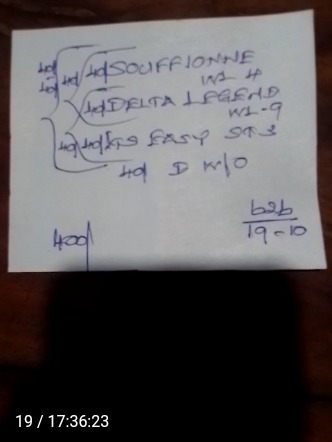 40/ 40/ 40/ SOUFFIONNE
W1 4
40/ DELTA LEGEND
W1-9
40/ 40/ ITS EASY ST 3
40/ D W/O
400/
19-10
19 / 17:36:23